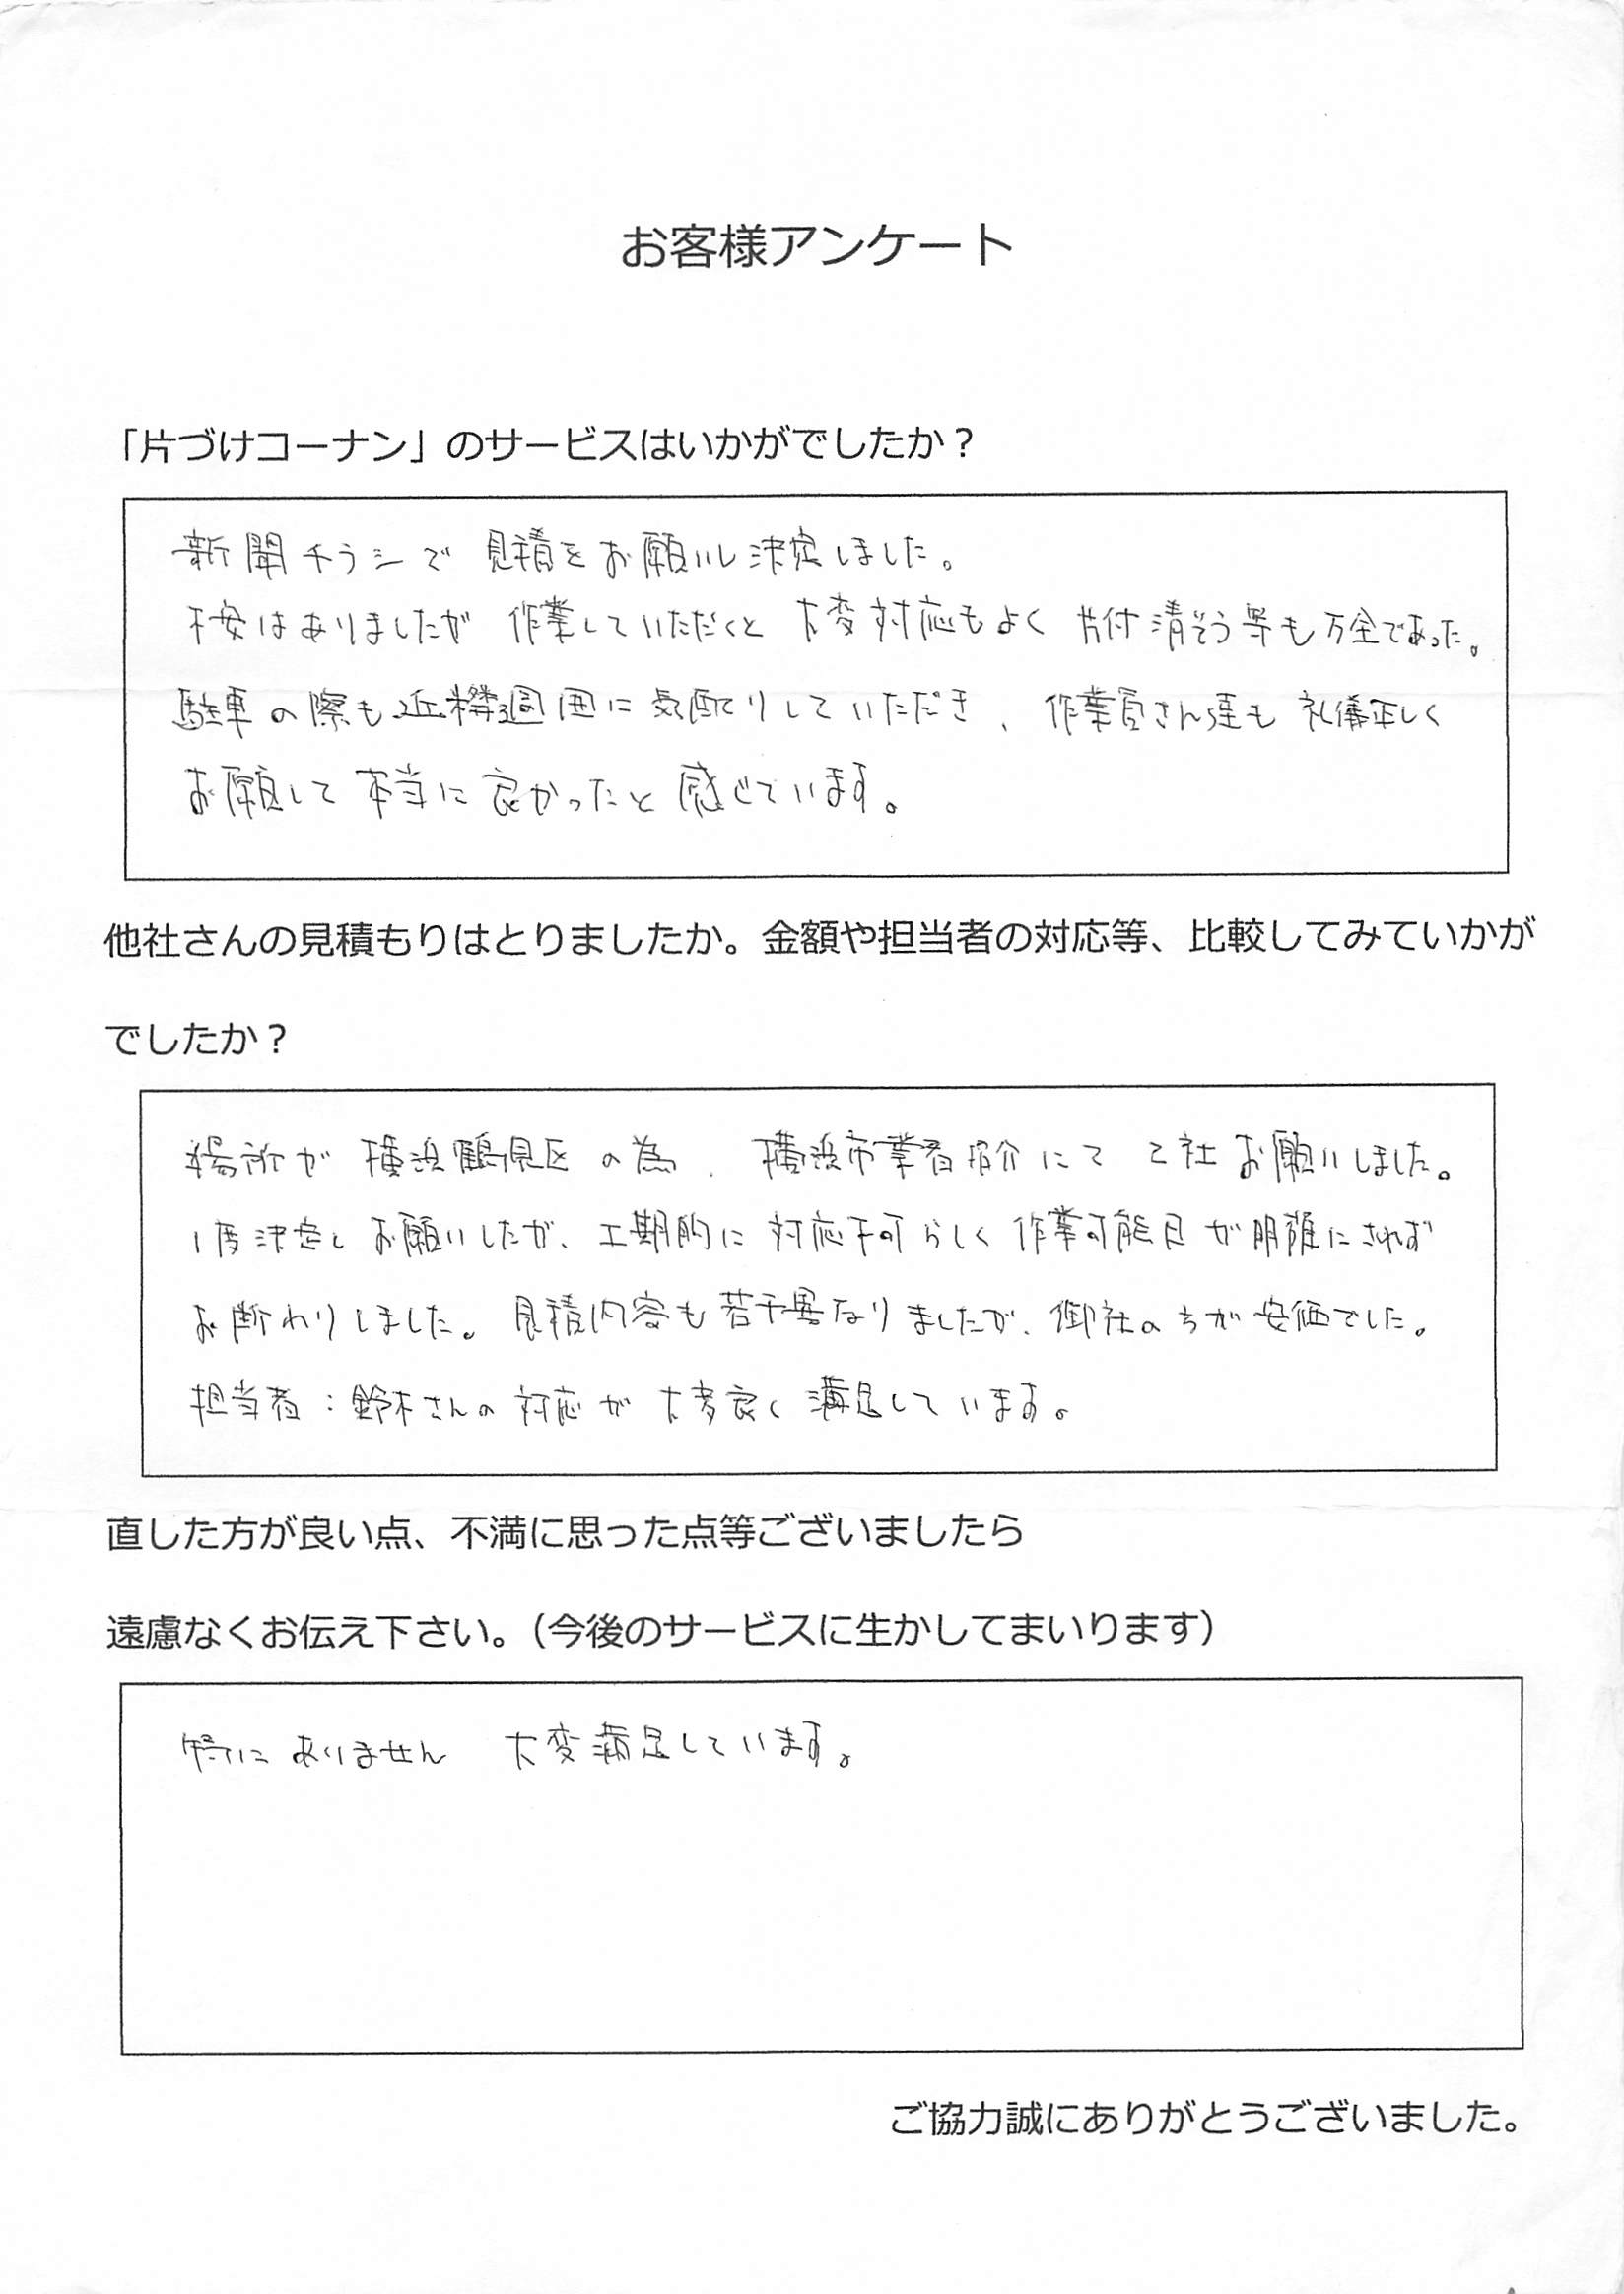 お客様アンケート
「片づけコーナン」のサービスはいかがでしたか？
新聞チラシで見積をお願いし決定しました。
不安はありましたが作業していただくと大変対応もよく片付清そう等も万全であった。
駐車の際も近隣周囲に気配りしていただき、作業員さん達も礼儀正しく
お願して本当に良かったと感じています。
他社さんの見積もりはとりましたか。金額や担当者の対応等、比較してみていかが
でしたか？
場所が横浜鶴見区の為、横浜市業者紹介にて2社お願いしました。
1度決定しお願いしたが、工期的に対応不可らしく作業可能日が明確にされず
お断わりしました。見積内容も若干異なりましたが、御社の方が安価でした。
担当者：鈴木さんの対応が大変良く満足しています。
直した方が良い点、不満に思った点等ございましたら
遠慮なくお伝え下さい。（今後のサービスに生かしてまいります）
特にありません 大変満足しています。
ご協力誠にありがとうございました。